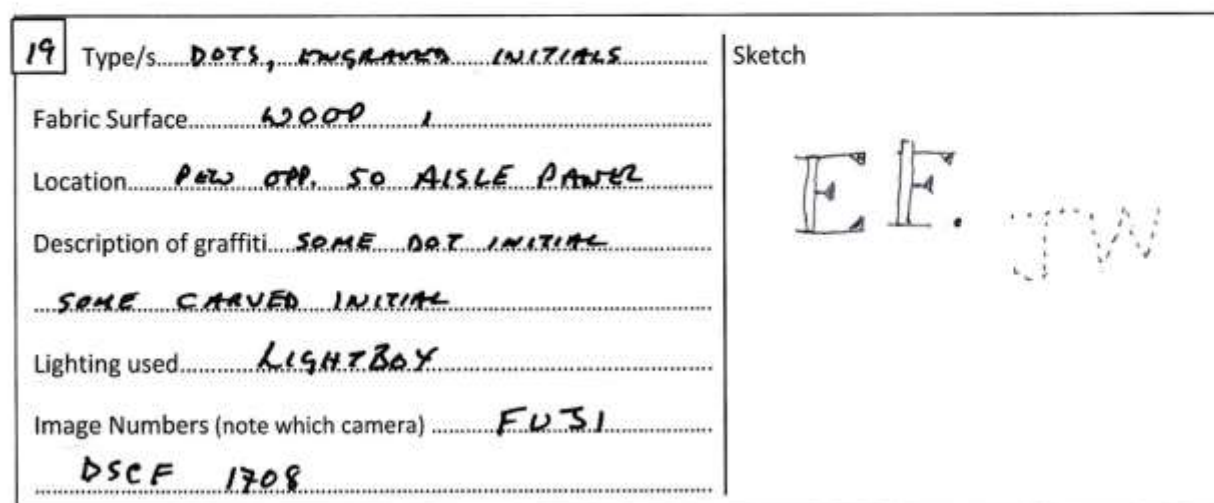 19 Type/s DOTS, ENGRAVED INITIALS
Fabric Surface WOOD
Location PEW OPP. SO AISLE PANEL
Description of graffiti SOME DOT INITIAL
SOME CARVED INITIAL
Lighting used LIGHTBOX
Image Numbers (note which camera) FUJI
DSCF 1708
Sketch
E F. JW